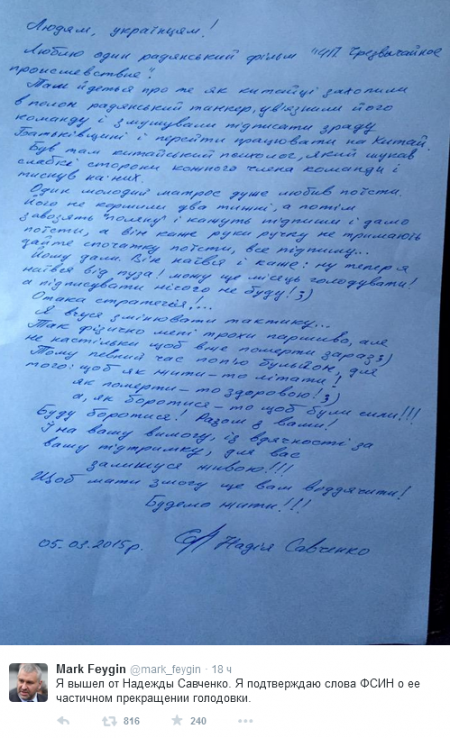 Людям, українцям!
Люблю один радянський фільм "ЧП Чрезвычайное
происшествие".
Там йдеться про те як китайці захопили
в полон радянський танкер, ув'язнили його
команду і змушували підписати зраду
Батьківщині і перейти працювати на Китай.
Був там китайський психолог, який шукав
слабкі сторони кожного члена команди і
тиснув на них.
Один молодий матрос дуже любив поїсти.
Його не кормили два тижні, а потім
завозять "поляну" і кажуть підпиши і дамо
поїсти, а він каже руки ручку не тримають
дайте спочатку поїсти, все підпишу...
Йому дали. Він наївся і каже: ну тепер я
наївся від пуза! можу ще місяць голодувати!
а підписувати нічого не буду! :)
Отака стратегія!...
Я вчуся змінювати тактику...
Так фізично мені трохи паршиво, але
не настільки щоб вже померти зараз :)
Тому певний час поп'ю бульйон, для
того: щоб як жити – то літати!
як померти – то здоровою! :)
а, як боротися – то щоб були сили!!!
Буду боротися! Разом з вами!
І на вашу вимогу, із вдячності за
вашу підтримку, для вас
залишуся живою!!!
Щоб мати змогу ще вам віддячити!
Будемо жити!!!
05.03.2015р. Надія Савченко
Mark Feygin @mark_feygin · 18 ч
Я вышел от Надежды Савченко. Я подтверждаю слова ФСИН о ее
частичном прекращении голодовки.
816 240